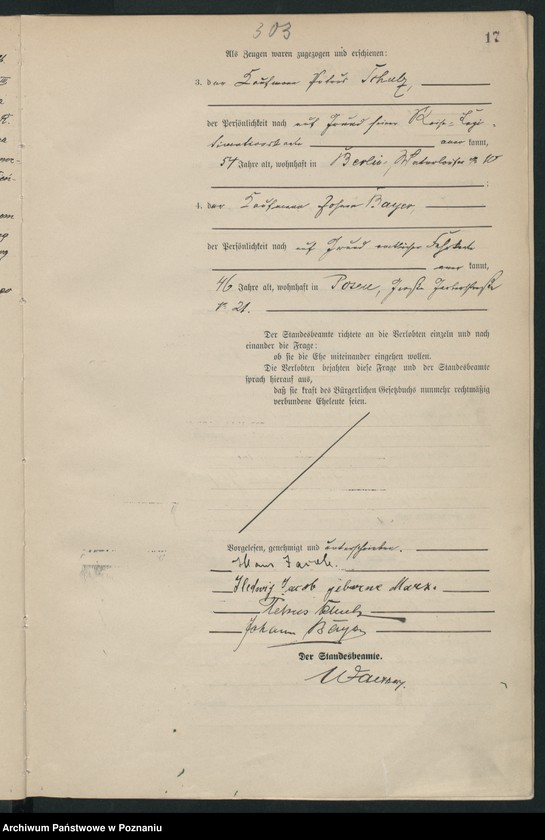 303
17
Als Zeugen waren zugezogen und erschienen:
3. der Kaufmann Petrus Schulz,
der Persönlichkeit nach auf Grund seiner Reise-Legi-
timationskarte kannt,
54 Jahre alt, wohnhaft in Berlin,
4. der Kaufmann Johann Bayer,
der Persönlichkeit nach auf Grund
kannt,
46 Jahre alt, wohnhaft in Posen,
21.
Der Standesbeamte richtete an die Verlobten einzeln und nach
einander die Frage:
ob sie die Ehe miteinander eingehen wollen.
Die Verlobten bejahten diese Frage und der Standesbeamte
sprach hierauf aus,
daß sie kraft des Bürgerlichen Gesetzbuchs nunmehr rechtmäßig
verbundene Eheleute seien.
Vorgelesen, genehmigt und unterschrieben.
Hans Jacob.
Hedwig Jacob geborne Marx.
Petrus Schulz
Johann Bayer
Der Standesbeamte.
Archiwum Państwowe w Poznaniu